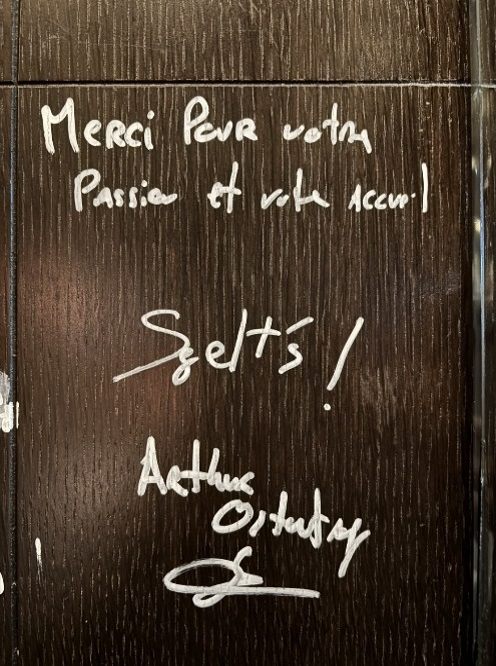 Merci Pour votre
Passion et votre Accueil
S'gelt's!
Arthur
Ostertag